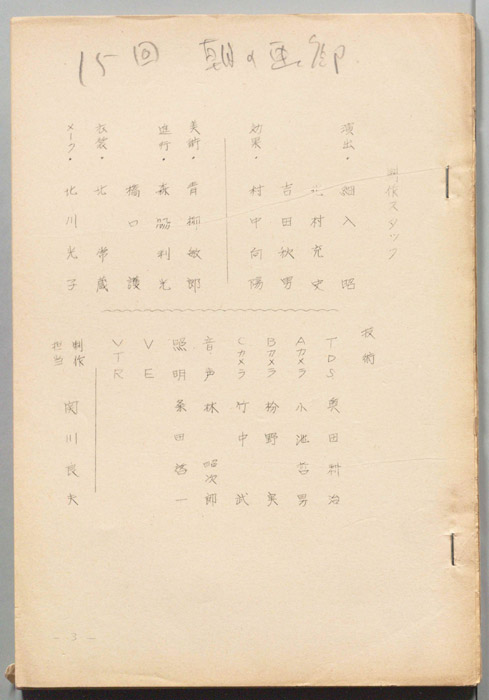 15回 朝の
制作スタッフ
演出・ 入 昭
村 克史
吉田秋男
効果・ 村中向陽
美術・ 青柳敏郎
進行・ 森 利光
橋口 護
衣裳・ 北 常蔵
メーク・ 北川光子
技術
TDS 奥田 治
Aカメラ 小池 男
Bカメラ 粉野 実
Cカメラ 竹中 武
音声 林 昭次郎
照明 条田啓一
VE
VTR
制作担当 関川良夫
- 3 -